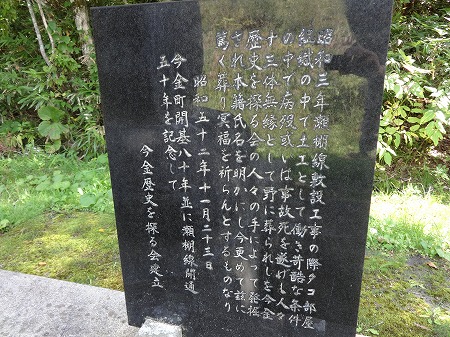 昭和三年瀬棚線敷設工事の際タコ部屋
組織の中で土工として働き苛酷な条件
の中で病歿或いは事故死を遂げし人々
十三体無縁として野に葬られしを今金
歴史を探る会の人々の手によって発掘
され本籍氏名を明かにし今更めて茲に
篤く葬り冥福を祈らんとするものなり
昭和五十二年十一月二十三日
今金町開基八十年並に瀬棚線開通
五十年を記念して
今金歴史を探る会建立